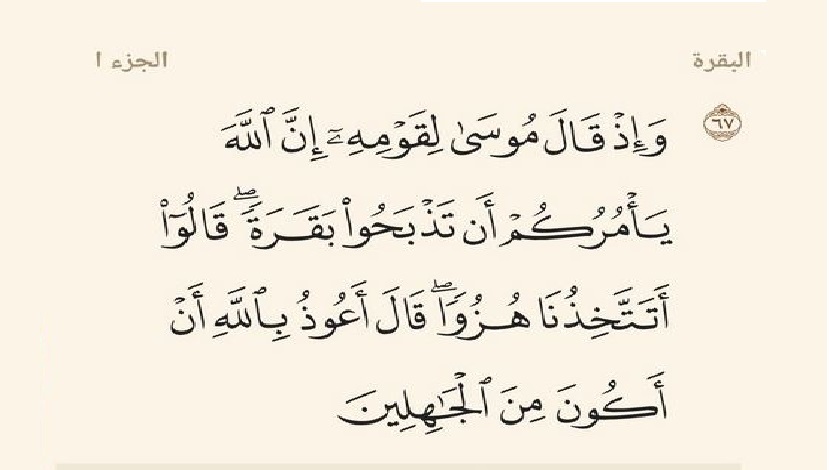 البقرة الجزء ١
٦٧ وَإِذْ قَالَ مُوسَىٰ لِقَوْمِهِۦٓ إِنَّ ٱللَّهَ
يَأْمُرُكُمْ أَن تَذْبَحُوا۟ بَقَرَةً ۖ قَالُوٓا۟
أَتَتَّخِذُنَا هُزُوًا ۖ قَالَ أَعُوذُ بِٱللَّهِ أَنْ
أَكُونَ مِنَ ٱلْجَـٰهِلِينَ